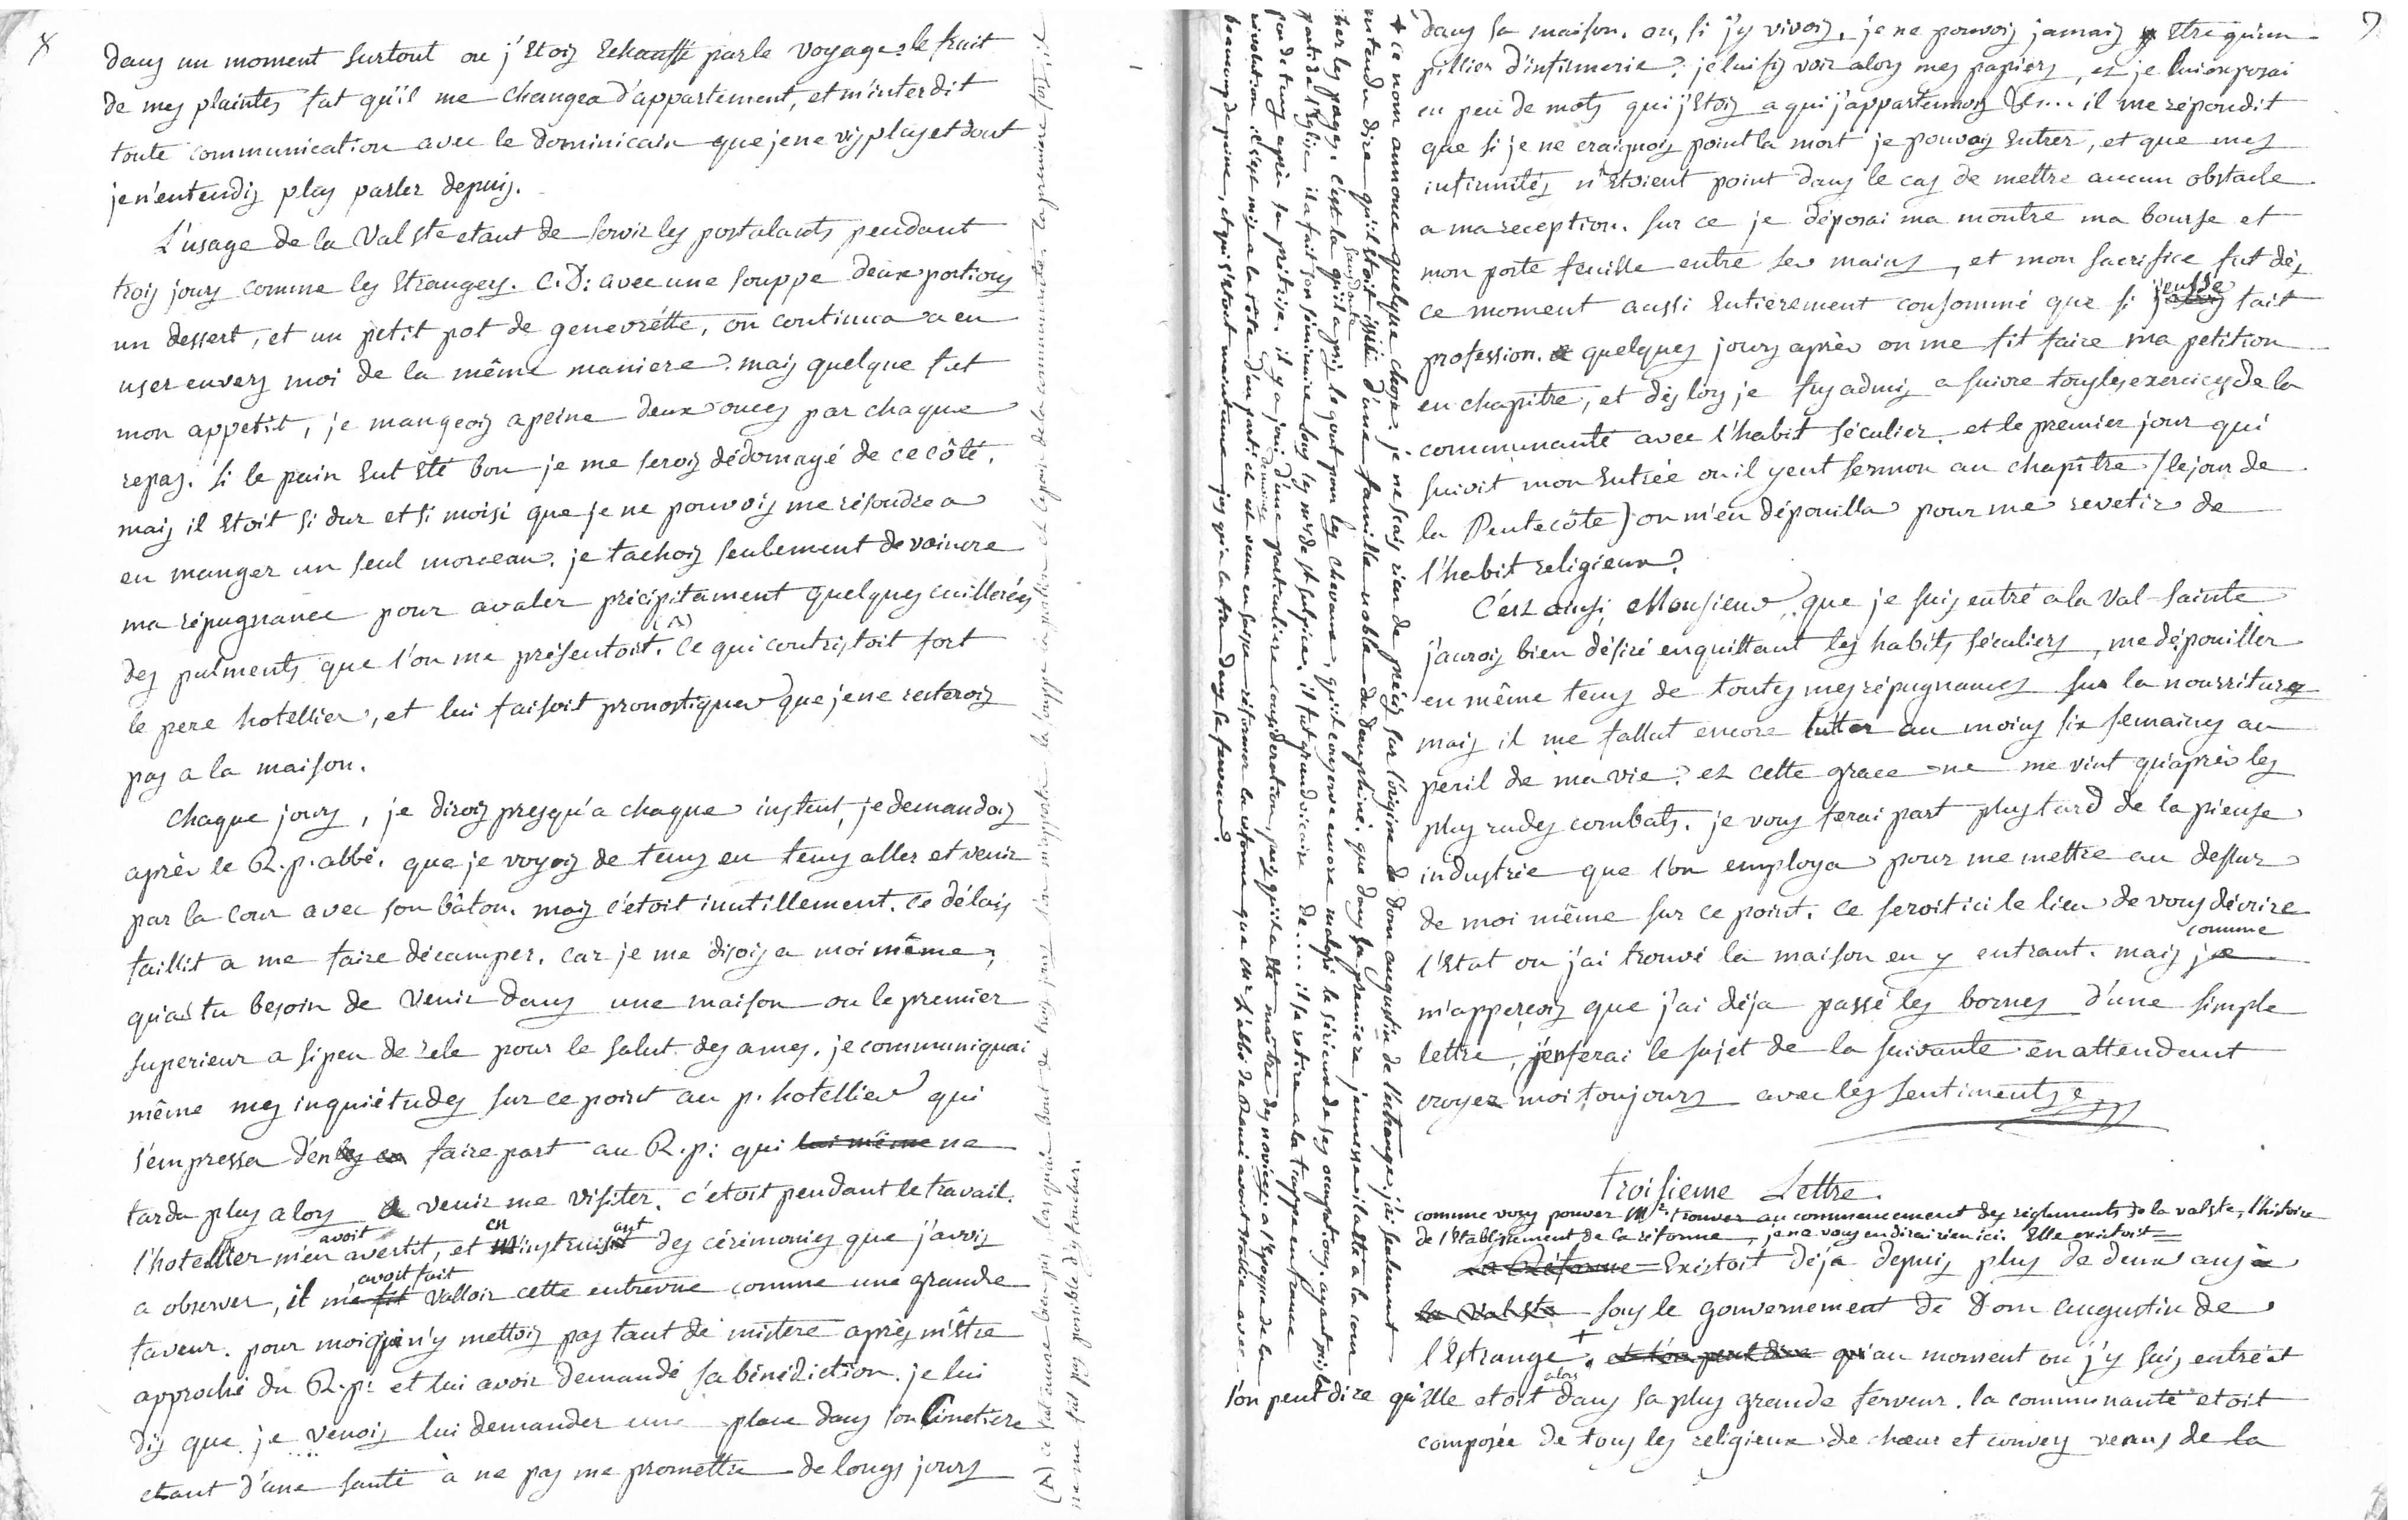 8
dans un moment surtout ou j'etois echauffé par le voyage. le fruit
de mes plaintes fut qu'il me changea d'appartement, et m'interdit
toute communication avec le dominicain que je ne vis plus et dont
je n'entendis plus parler depuis.
L'usage de la Val ste etant de servir les postulants pendant
trois jours comme les etrangers. C.D: avec une souppe deux portions
un dessert, et un petit pot de genevrétte, on continua a en
user envers moi de la même maniere. mais quelque fut
mon appetit, je mangeois a peine deux onces par chaque
repas. si le pain eut eté bon je me serois dédomagé de ce côté.
mais il etoit si dur et si moisi que je ne pouvois me résoudre a
en manger un seul morceau. je tachois seulement de vaincre
ma répugnance pour avaler précipitament quelques cuillerées
des pulments que l'on me présentoit. (A) ce qui contristoit fort
le pere hotellier, et lui faisoit pronostiquer que je ne resterois
pas a la maison.
Chaque jours, je dirois presqu'a chaque instent, je demandois
après le R.p. abbé. que je voyois de tems en tems aller et venir
par la cour avec son bâton. mais c'etoit inutillement. ce délais
faillit a me faire décamper. car je me disois a moi même,
qu'as tu besoin de venir dans une maison ou le premier
superieur a si peu de zele pour le salut des ames. je communiquai
même mes inquiétudes sur ce point au p. hotellier qui
s'empressa d'en les en faire part au R.p: qui lui même ne
tarda plus alors a venir me visiter. c'etoit pendant le travail.
avoit en ant
l'hotellier m'en avertit, et m'instruisit des cérémonies que j'avois
avoit fait
a observer, il me fit valloir cette entrevue comme une grande
faveur. pour moi qui n'y mettois pas tant de mistere après m'être
approché du R.p: et lui avoir demandé sa bénédiction. je lui
dis que je venois lui demander une place dans son Cimetiere
etant d'une santé à ne pas me promettre de longs jours
(A) ce fut encore bien pis lorsqu'au bout de trois jours l'on m'apporta la souppe la portion et le pain de la communauté. la premiere fois, il
ne me fut pas possible d'y toucher.
9
dans sa maison. ou, si j'y vivois, je ne pouvois jamais y etre qu'un
pillier d'infirmerie. je lui fis voir alors mes papiers, et je lui exposai
en peu de mots qui j'etois a qui j'appartenois &c... il me répondit
que si je ne craignois point la mort je pouvois entrer, et que mes
infirmités n'etoient point dans le cas de mettre aucun obstacle
a ma reception. sur ce je déposai ma montre ma bourse et
mon porte feuille entre ses mains, et mon sacrifice fut dès
j'eusse
ce moment aussi entierement consommé que si j'avois fait
profession. quelques jours après on me fit faire ma petition
en chapitre, et dès lors je fus admis a suivre tous les exercices de la
communauté avec l'habit séculier. et le premier jour qui
suivit mon entrée ou il y eut sermon au chapitre (le jour de
la Pentecôte) on m'en dépouilla pour me revetir de
l'habit religieux.
C'est ainsi, Monsieur, que je suis entré a la Val-Sainte
j'aurois bien désiré en quittant les habits séculiers, me dépouiller
en même tems de toutes mes répugnances sur la nourriture
mais il me fallut encore lutter au moins six semaines au
peril de ma vie. et cette grace ne me vint qu'après les
plus rudes combats. je vous ferai part plus tard de la pieuse
industrie que l'on employa pour me mettre au dessus
de moi même sur ce point. ce seroit ici le lieu de vous décrire
comme
l'etat ou j'ai trouvé la maison en y entrant. mais je
m'apperçois que j'ai déja passé les bornes d'une simple
lettre, j'en ferai le sujet de la suivante en attendant
croyez moi toujours avec les sentiments &
troisieme Lettre.
comme vous pouvez Mr trouver au commencement des réglements de la valste, l'histoire
de l'etablissement de la réforme, je ne vous en dirai rien ici. Elle existoit =
La Réforme = Existoit déja depuis plus de deux ans à
la Val ste sous le gouvernement de Dom augustin de
l'Estrange +. et l'on peut dire qu'au moment ou j'y suis entré et
alors
l'on peut dire qu'elle etoit dans sa plus grande ferveur. la communauté etoit
composée de tous les religieux de chœur et convers venus de la
+ ce nom annonce quelque chose. je ne scais rien de précis sur l'origine de dom augustin de l'estrange, j'ai seulement
entendu dire qu'il etoit issüe d'une famille noble du dauphiné. que dans sa premiere jeunesse il alla a la cour
sans doute
cher les pages. c'est la qu'il a pris le gout pour les chevaux, qu'il conserve encore malgré le sérieux de ses occupations. ayant pris le
parti de l'eglise il a fait son séminaire sous les mrs de st sulpice. il fut grand vicaire de .... il se retira a la trappe en france
des novices
peu de tems après sa prêtrise. il y a joui d'une particuliere considération, puisqu'il a été maître des novices. a l'epoque de la
révolution il s'est mis a la tête d'un parti et est venu en suisse réformer la réforme que mr l'abbé de Rancé avoit etablie avec
beaucoup de peine, et qui s'etoit maintenue jusqu'a la fin dans sa ferveur.